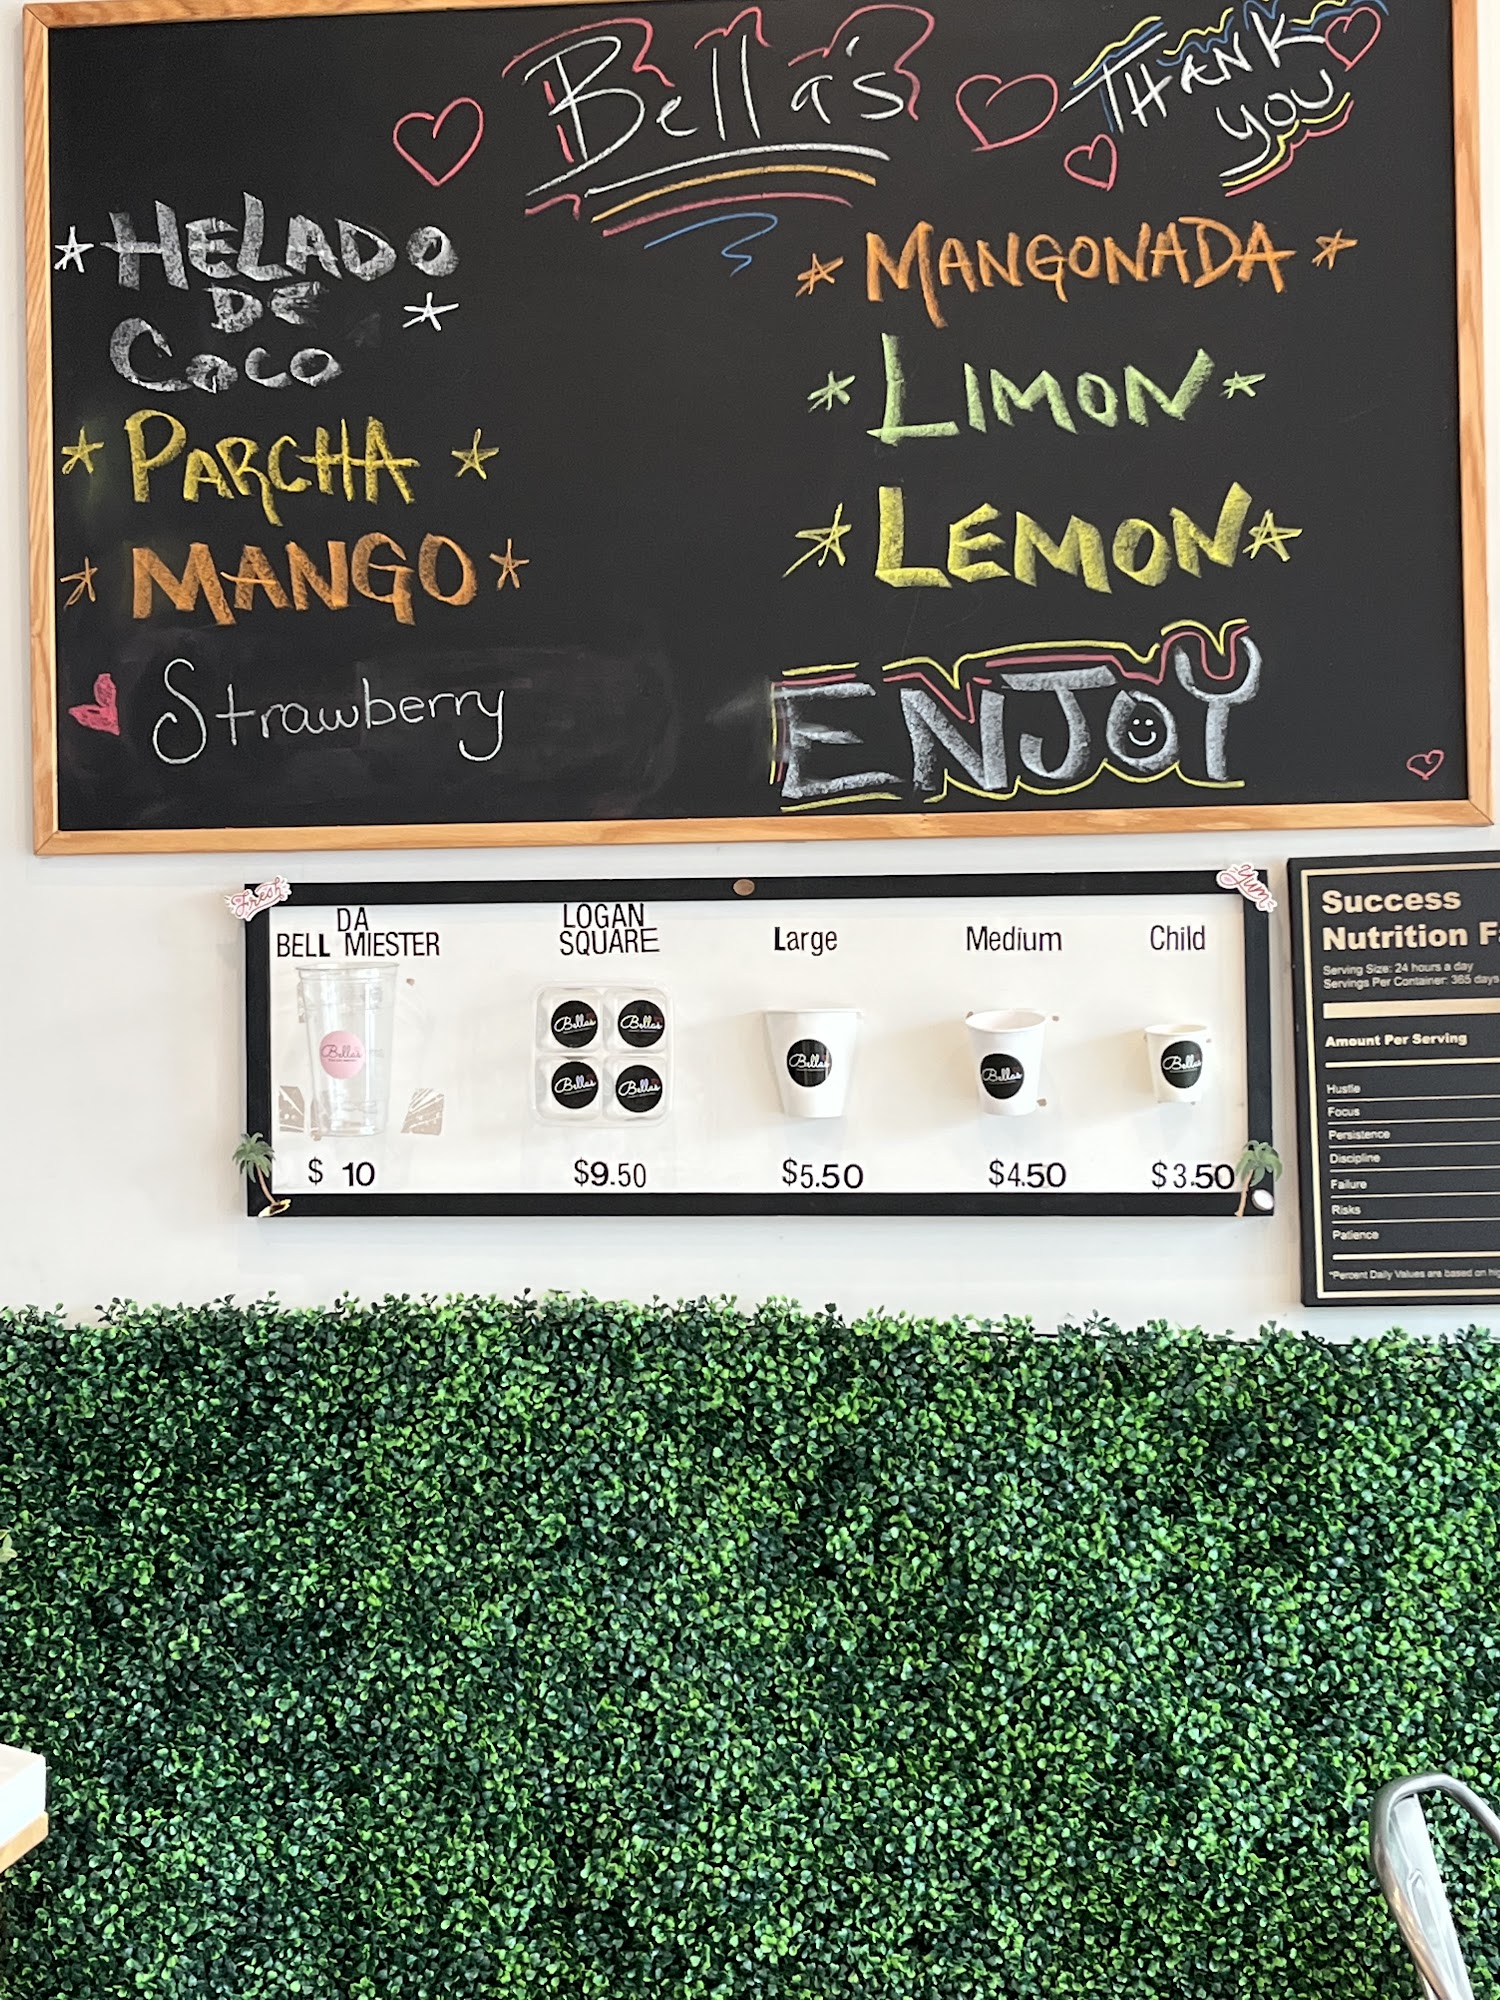 Bella's
THANK
YOU
HELADO
DE
COCO
PARCHA
MANGO
Strawberry
MANGONADA
LIMON
LEMON
ENJOY
Fresh
Yum
DA
BELL MIESTER
LOGAN
SQUARE
Large
Medium
Child
Bella's
Bella's
Bella's
Bella's
Bella's
Bella's
Bella's
Bella's
$ 10
$9.50
$5.50
$4.50
$3.50
Success
Nutrition
Serving Size: 24 hours a day
Servings Per Container: 365 days
Amount Per Serving
Hustle
Focus
Persistence
Discipline
Failure
Risks
Patience
*Percent Daily Values are based on